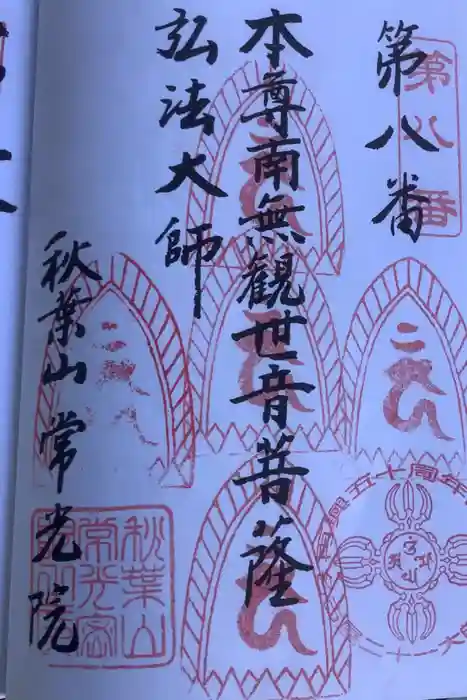 第八番
第八番
本尊南無観世音菩薩
弘法大師
秋葉山常光院
秋葉山
常光密
五十周年
二十一大